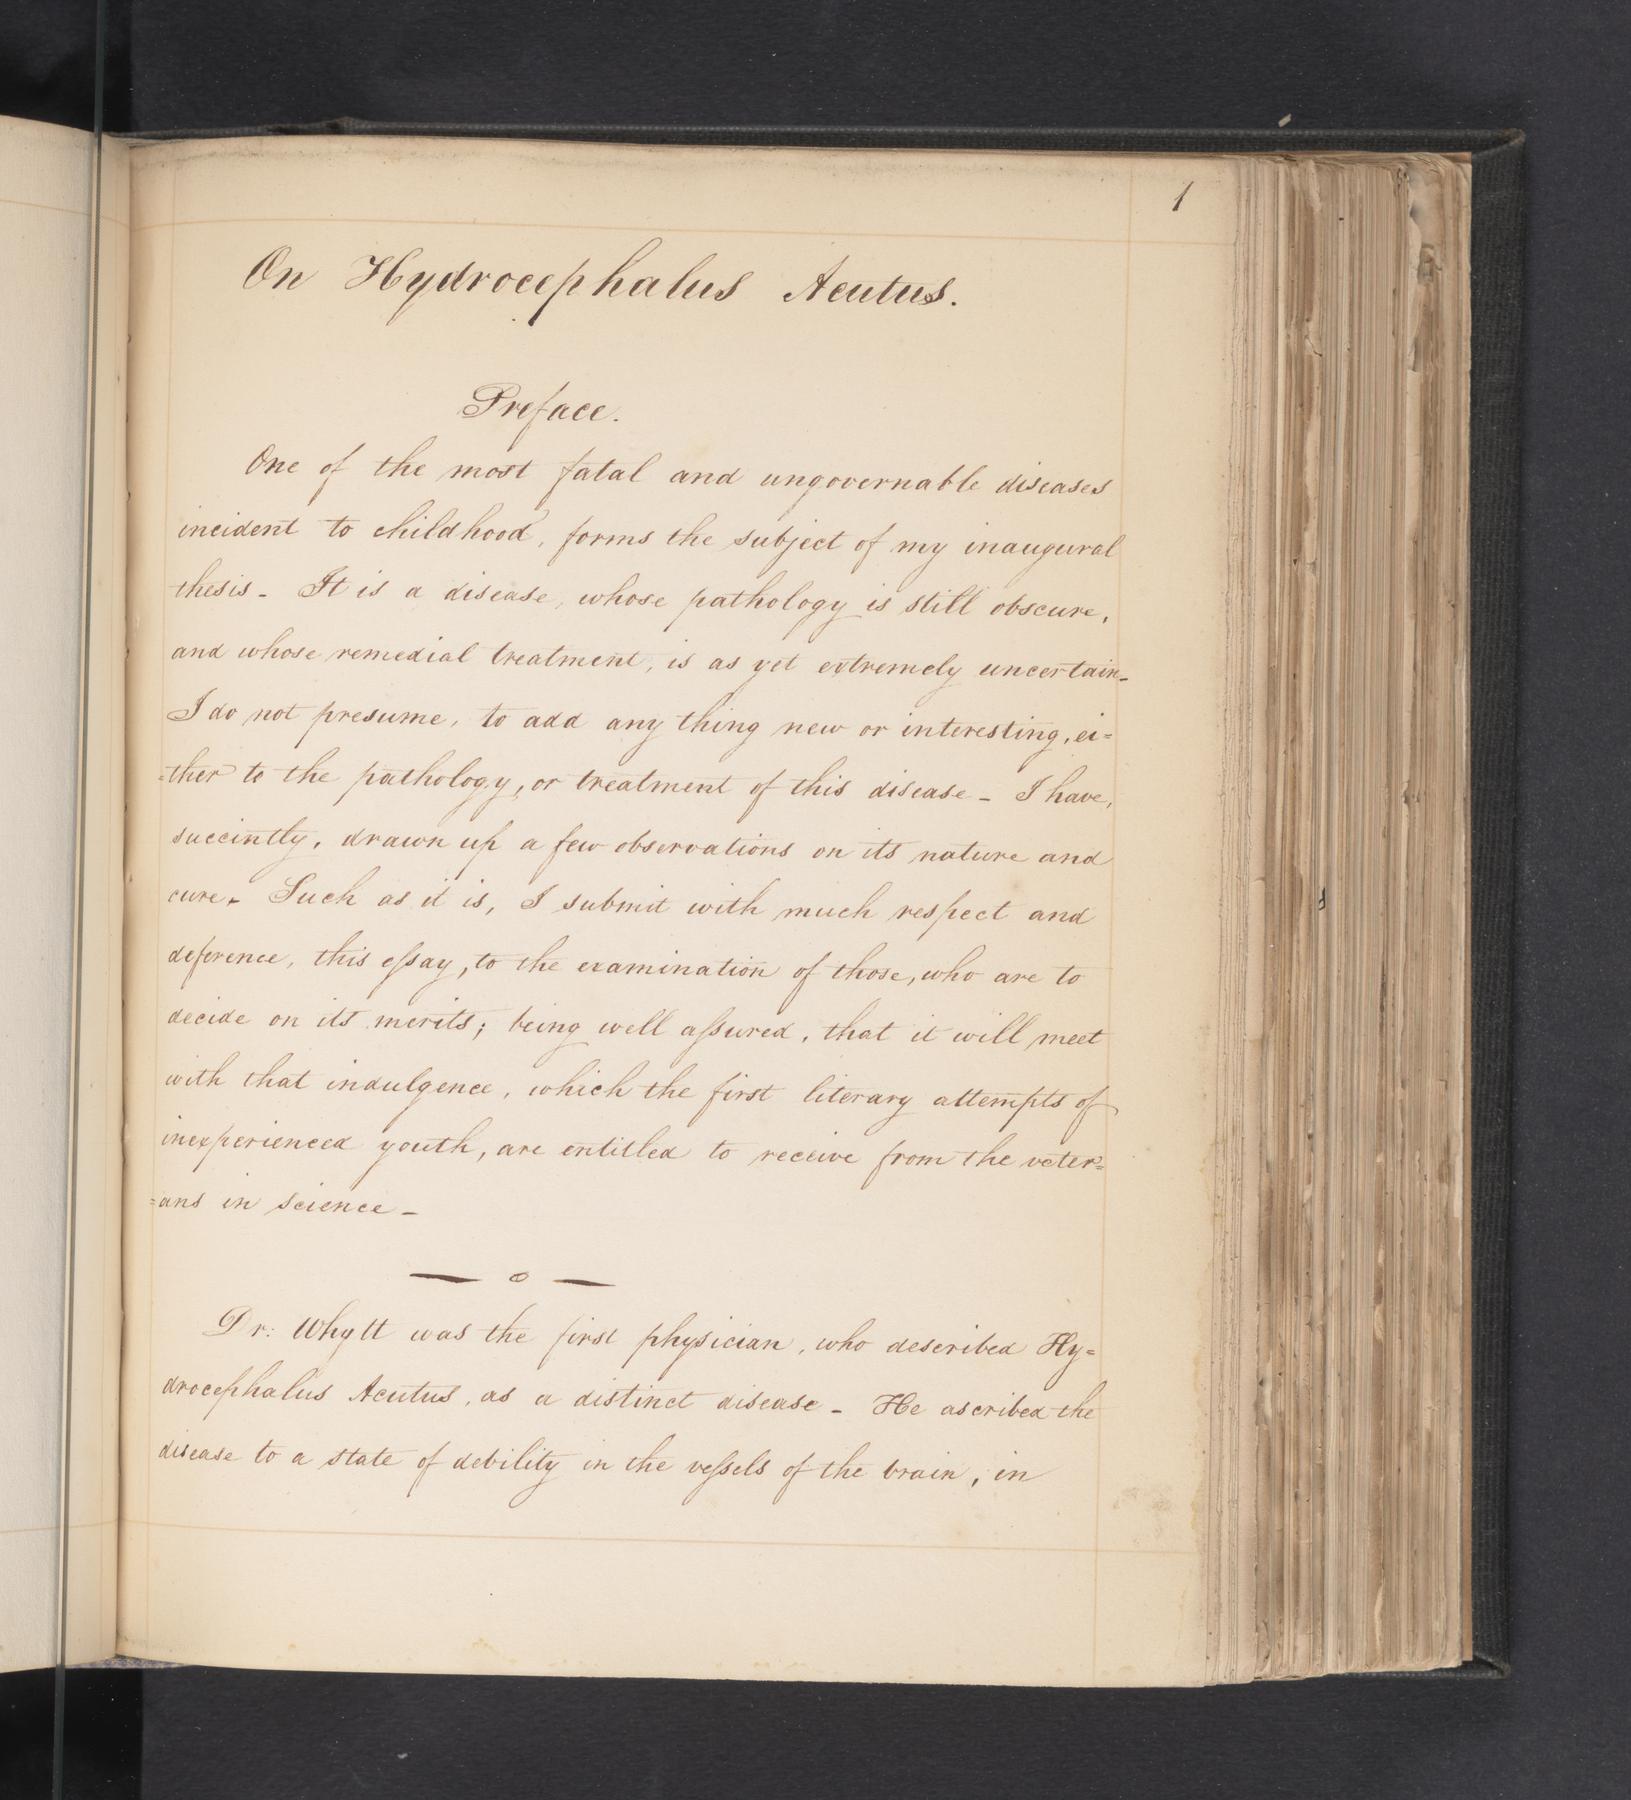 1
On Hydrocephalus Acutus.
Preface.
One of the most fatal and ungovernable diseases
incident to childhood, forms the subject of my inaugural
thesis - It is a disease, whose pathology is still obscure,
and whose remedial treatment, is as yet extremely uncertain -
I do not presume, to add any thing new or interesting, ei=
=ther to the pathology, or treatment of this disease - I have,
succintly, drawn up a few observations on its nature and
cure - Such as it is, I submit with much respect and
deference, this eſsay, to the examination of those, who are to
decide on its merits; being well aſsured, that it will meet
with that indulgence, which the first literary attempts of
inexperienced youth, are entitled to receive from the veter=
=ans in science -
Dr: Whytt was the first physician, who described Hy=
drocephalus Acutus, as a distinct disease - He ascribed the
disease to a state of debility in the veſsels of the brain, in